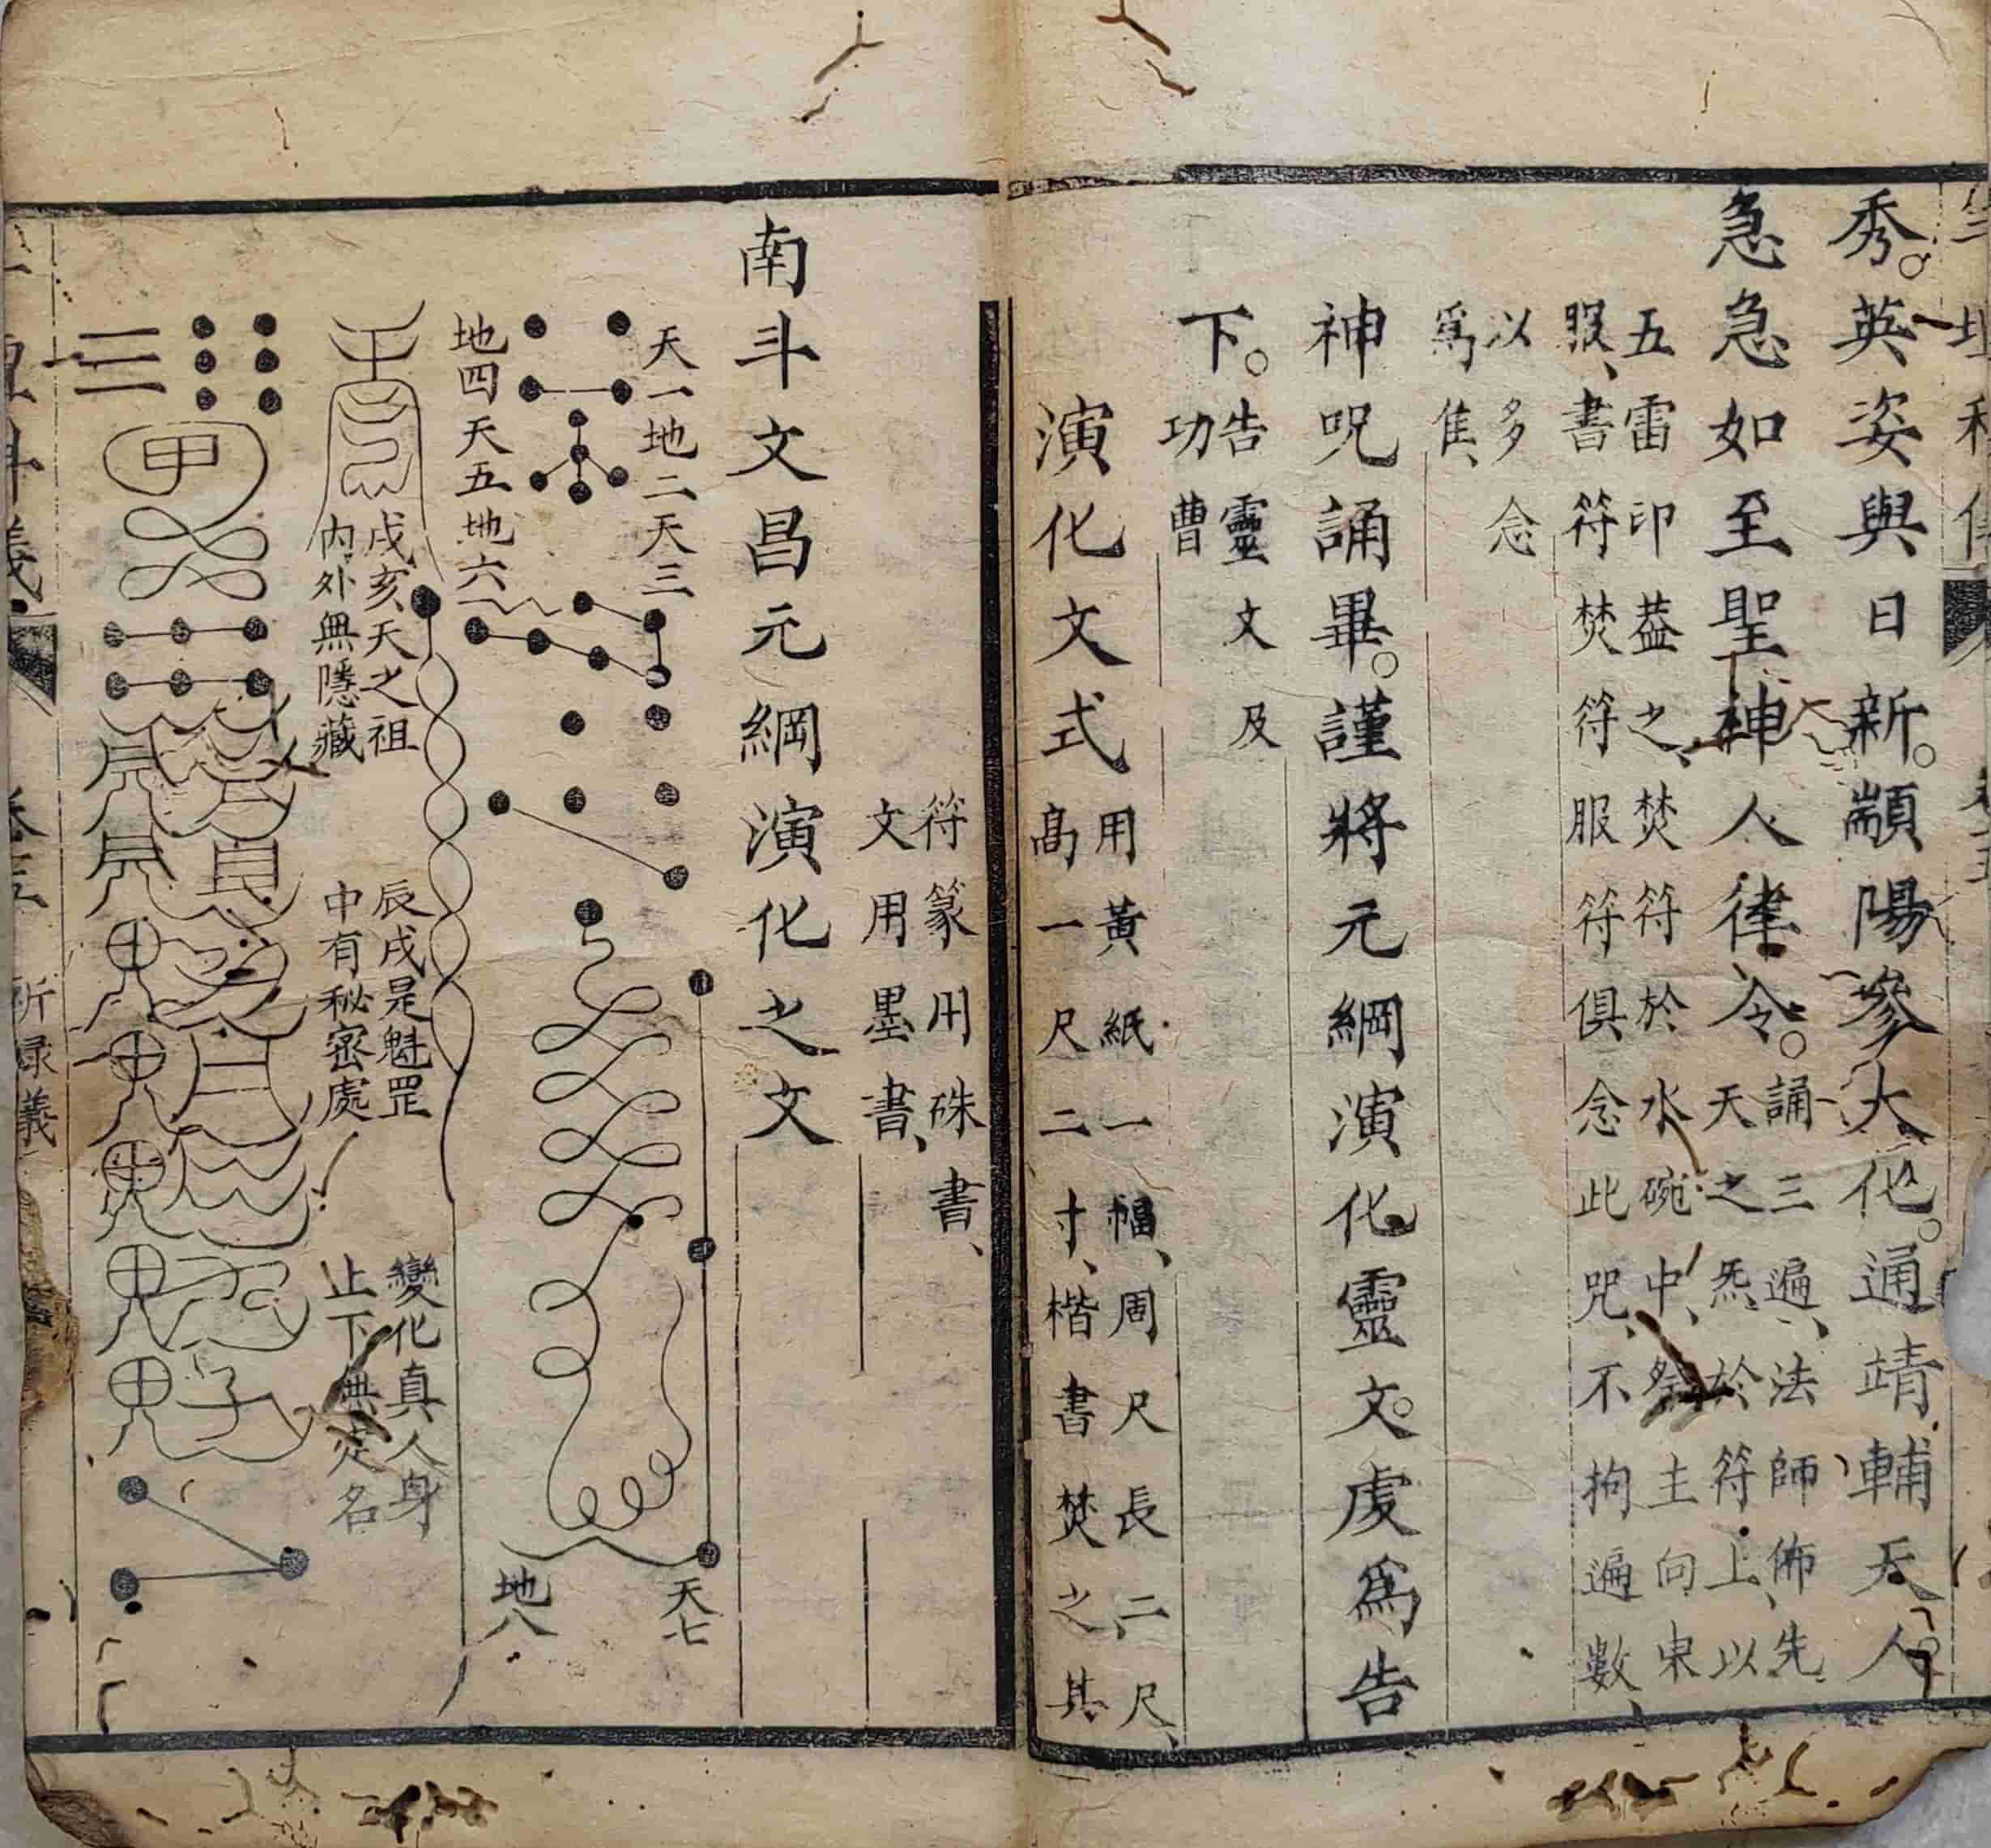 秀。英姿與日新。顓陽參大化。通靖輔天人。
急急如至聖神人律令。
誦三遍、法師佈、先
天之炁、於符上、以
五雷印蓋之、焚符於水碗中、祭主向東
服、書符焚符服符俱念此咒、不拘遍數、
以多念
爲隹、
神呪誦畢。謹將元綱演化靈文。虔爲告
下。
告靈文及
功曹
演化文式
用黃紙一幅、周尺長二尺、
高一尺二寸、楷書焚之其
符篆用硃書、
文用墨書、
南斗文昌元綱演化之文
天一地二天三
地四天五地六
天七
地八
戌亥天之祖
內外無隱藏
辰戌是魁罡
中有秘密處
變化真人身
止下無定名
甲